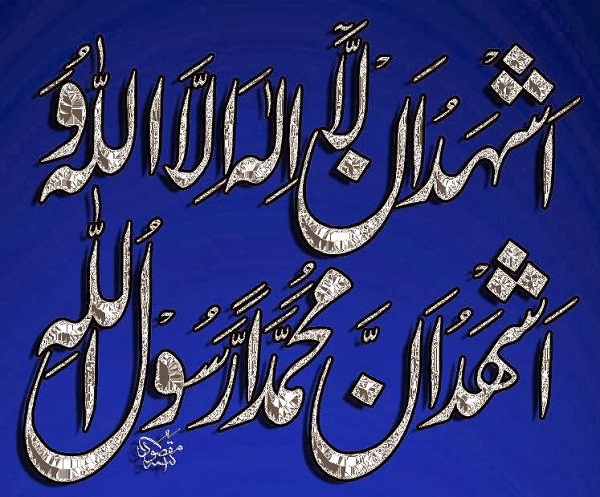 اَشْهَدُ اَنْ لَّآ اِلٰهَ اِلَّا اللهُ وَ
اَشْهَدُ اَنَّ مُحَمَّدًا رَّسُوْلُ اللهِ